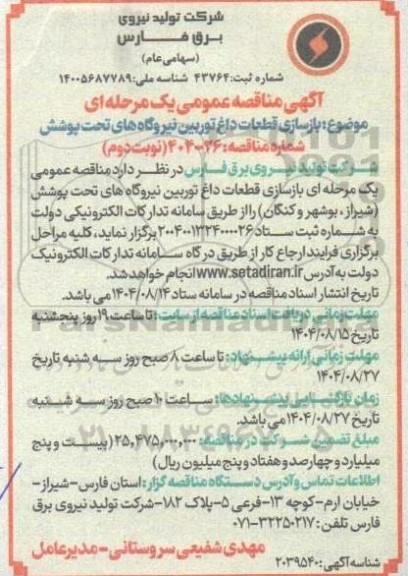 شرکت تولید نیروی
برق فارس
(سهامی عام)
شماره ثبت: ۴۳۷۶۴ شناسه ملی: ۱۴۰۰۵۶۸۷۷۸۹
آگهی مناقصه عمومی یک مرحله ای
موضوع: بازسازی قطعات داغ توربین نیروگاه های تحت پوشش
شماره مناقصه: ۳۶-۴۰۴ (نوبت دوم)
شرکت تولید نیروی برق فارس در نظر دارد مناقصه عمومی
یک مرحله ای بازسازی قطعات داغ توربین نیروگاه های تحت پوشش
(شیراز، بوشهر و کنگان) را از طریق سامانه تدارکات الکترونیکی دولت
به شماره ثبت ستاد ۲۰۰۴۰۰۱۳۲۴۰۰۰۰۲۶ برگزار نماید، کلیه مراحل
برگزاری فرایند ارجاع کار از طریق درگاه سامانه تدارکات الکترونیک
دولت به آدرس www.setadiran.ir انجام خواهد شد.
تاریخ انتشار اسناد مناقصه در سامانه ستاد ۱۴۰۴/۰۸/۱۴ می باشد.
مهلت زمانی دریافت اسناد مناقصه از سایت: تا ساعت ۱۹ روز پنجشنبه
تاریخ ۱۴۰۴/۰۸/۱۵
مهلت زمانی ارائه پیشنهاد: تا ساعت ۸ صبح روز سه شنبه تاریخ
۱۴۰۴/۰۸/۲۷
زمان بازگشایی پیشنهادها: ساعت ۱۰ صبح روز سه شنبه
تاریخ ۱۴۰۴/۰۸/۲۷ می باشد.
مبلغ تضمین شرکت در مناقصه: ۲۵,۴۷۵,۰۰۰,۰۰۰ (بیست و پنج
میلیارد و چهارصد و هفتاد و پنج میلیون ریال)
اطلاعات تماس و آدرس دستگاه مناقصه گزار: استان فارس-شیراز-
خیابان ارم-کوچه ۱۳-فرعی ۵-پلاک ۱۸۲-شرکت تولید نیروی برق
فارس تلفن: ۳۲۲۵۰۲۱۷-۰۷۱
مهدی شفیعی سروستانی-مدیرعامل
شناسه آگهی: ۲۰۳۹۵۴۰